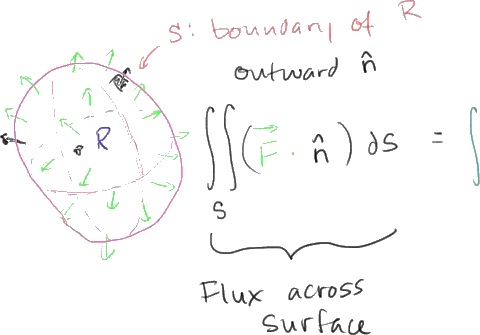 S: boundary of R
outward n̂
R
∬ (F⃗ · n̂) dS = ∫
S
Flux across
surface